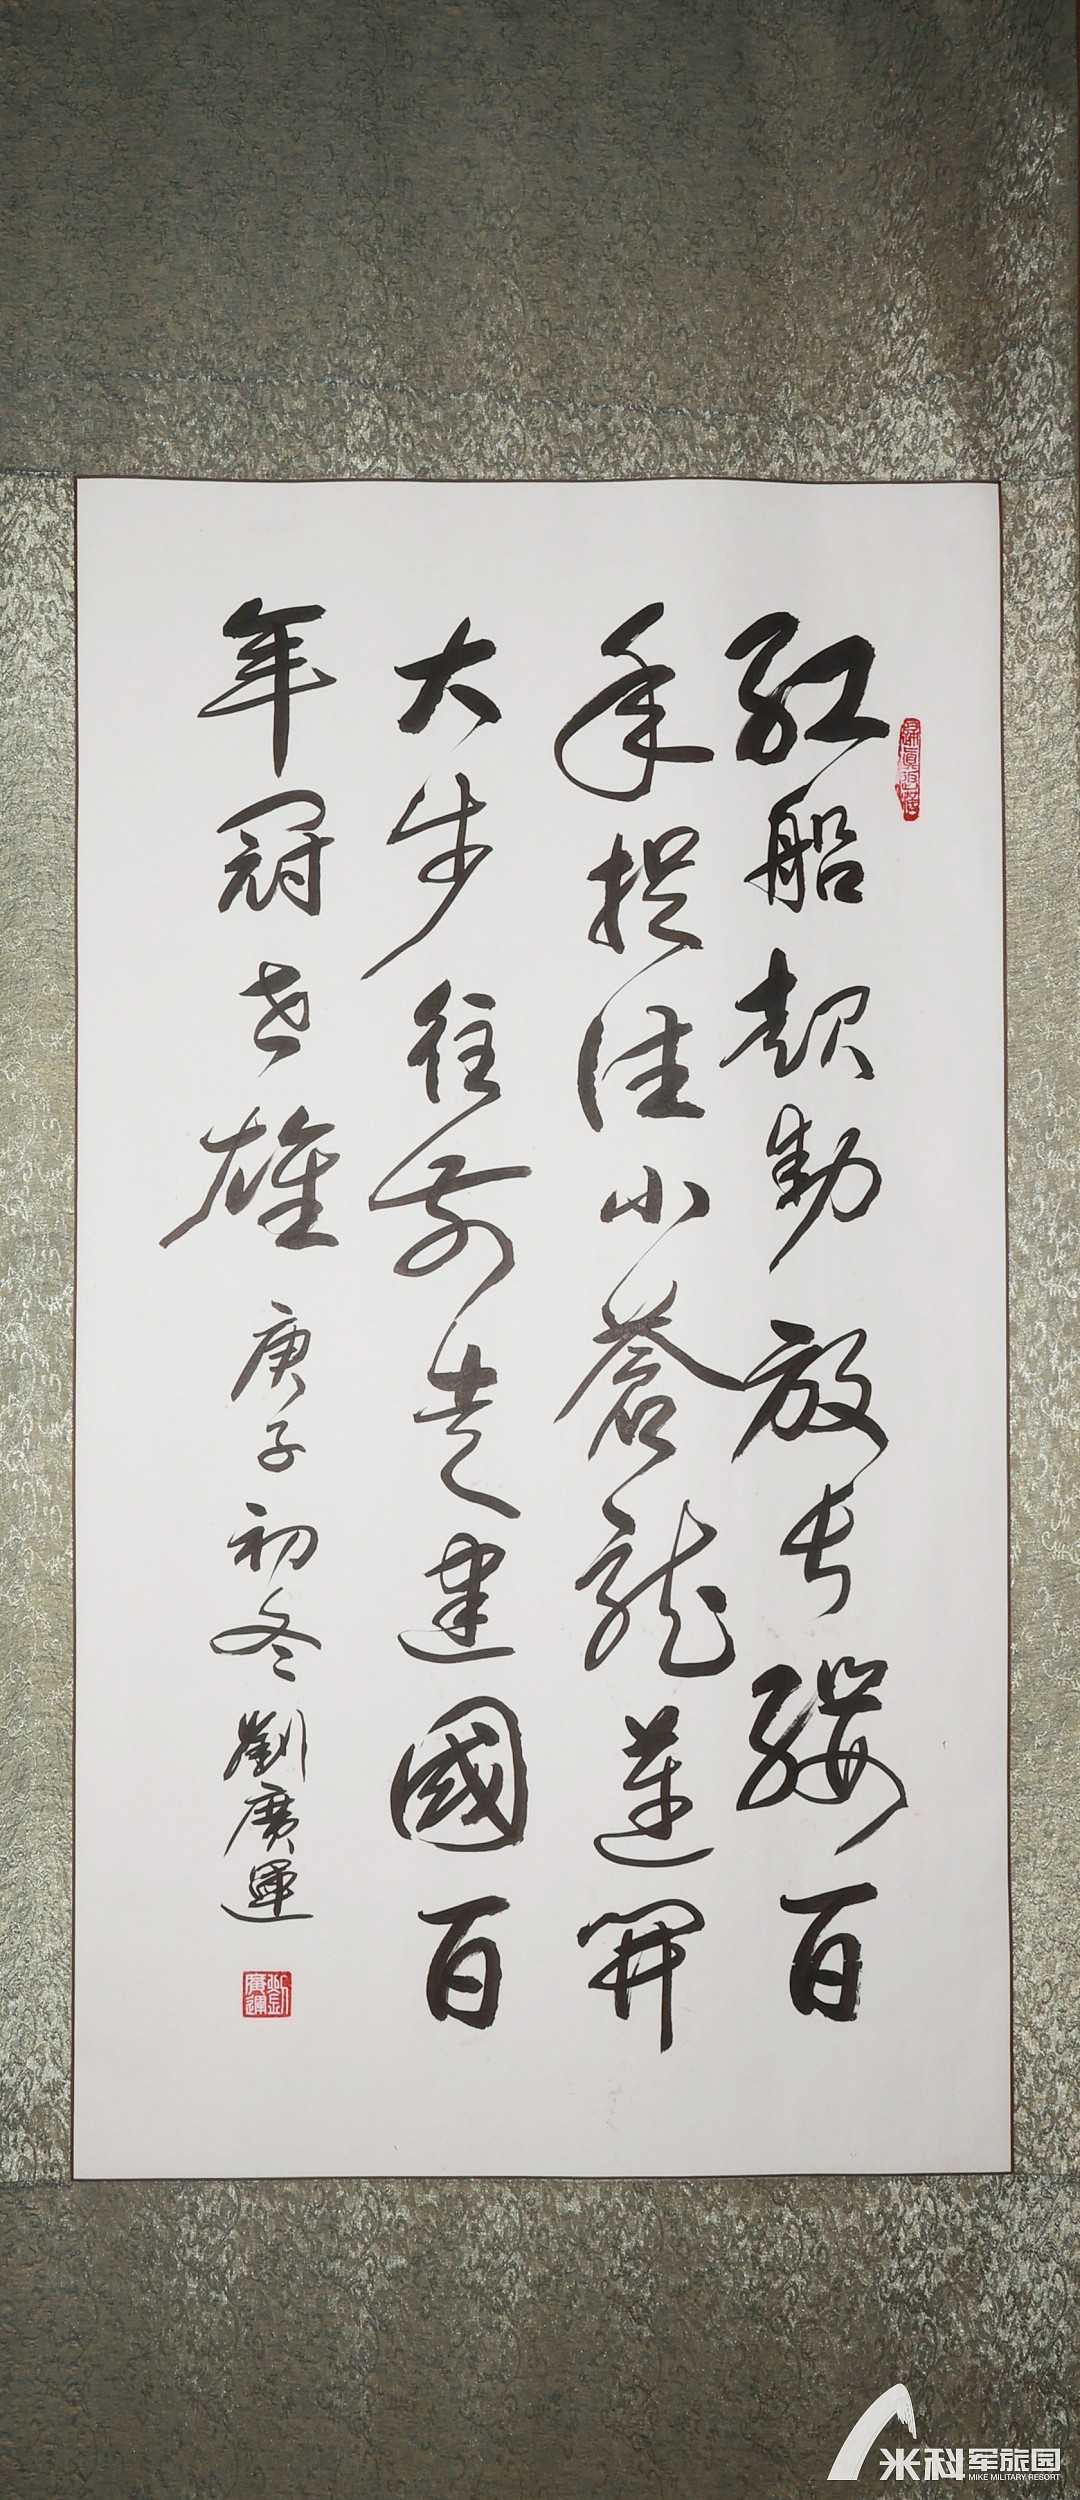 紅船起動放長纓百
年捉住小蒼龍邁開
大步往前走建國百
年冠世雄 庚子初冬 劉廣運
劉廣運
米科军旅园
MIKE MILITARY RESORT